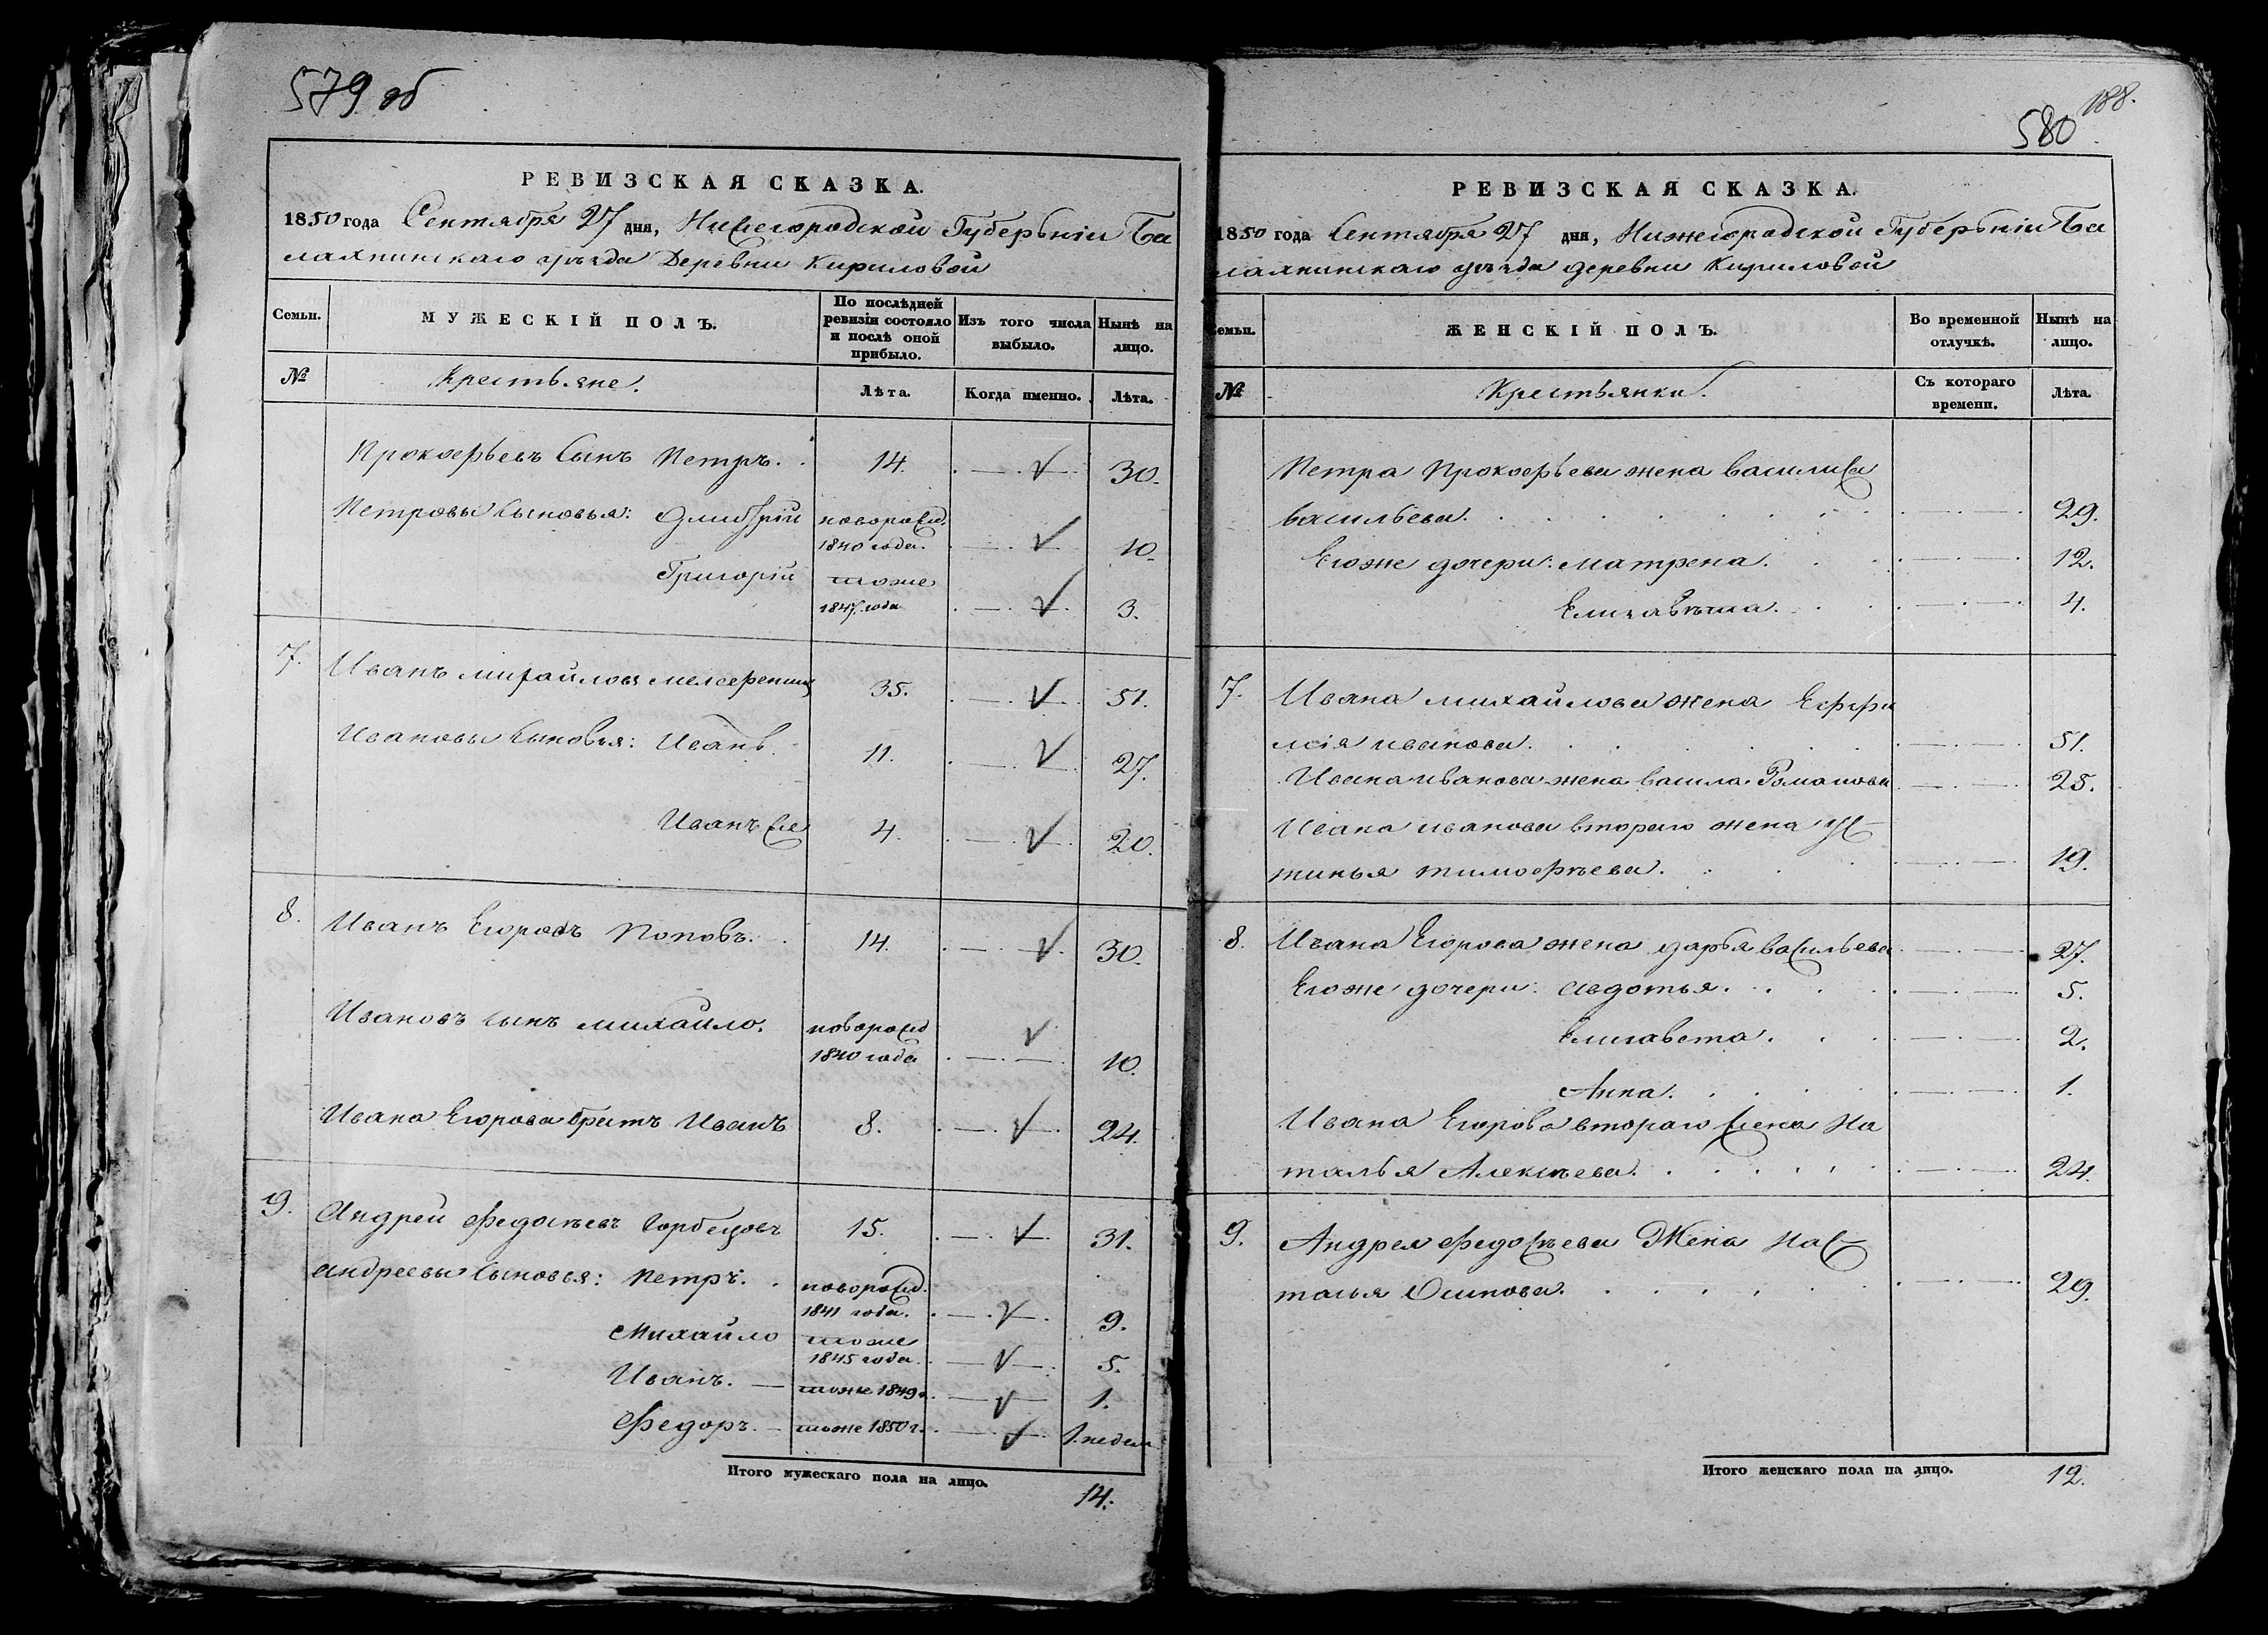 579 об
РЕВИЗСКАЯ СКАЗКА.
1850 года Сентября 27 дня, Нижегородской Губерьніи Ба
лахнинскаго уѣзда Деревни Кириловой
Семьи.
МУЖЕСКІЙ ПОЛЪ.
По послѣдней ревизіи состояло и послѣ оной прибыло.
Изъ того числа выбыло.
Нынѣ на лицо.
№
Крестьяне.
Лѣта.
Когда именно.
Лѣта.
Прокофьевъ Сынъ Петръ. 14. 30.
Петровы Сыновья: Дмитрій новорожд. 1840 года. 10.
Григорій тоже 1847 года 3.
7. Иванъ Михайловъ 35. 51.
Ивановы Сыновья: Иванъ. 11. 27.
Иванъ же 4. 20.
8. Иванъ Егоровъ Поповъ. 14. 30.
Ивановъ сынъ Михайло. новорожд 1840 года 10.
Ивана Егорова братъ Иванъ 8. 24.
9. Андрей Федосѣевъ 15. 31.
Андреевы Сыновья: Петръ. новорожд. 1841 года. 9.
Михайло тоже 1845 года. 5.
Иванъ. — тоже 1849 г. 1.
Федоръ. — тоже 1850 г. 1 недел
Итого мужескаго пола на лицо. 14.
188.
580
РЕВИЗСКАЯ СКАЗКА.
1850 года Сентября 27 дня, Нижегородской Губерьніи Ба
лахнинскаго уѣзда деревни Кириловой
Семьи.
ЖЕНСКІЙ ПОЛЪ.
Во временной отлучкѣ.
Нынѣ на лицо.
№
Крестьянки.
Съ котораго времени.
Лѣта.
Петра Прокофьева жена Василиса
Васильева. 29.
Егоже дочери: Матрена. 12.
Елизавѣта. 4.
7. Ивана Михайлова жена Ефи
мія Иванова. 51.
Ивана Иванова жена Васила Романова 25.
Ивана Иванова втораго жена Ус
тинья Тимофѣева. 19.
8. Ивана Егорова жена Дарья Васильева 27.
Егоже дочери: Авдотья. 5.
Елизавета. 2.
Анна. 1.
Ивана Егорова втораго жена На
талья Алексѣева. 24.
9. Андрея Федосѣева Жена Нас
тасья Осипова. 29.
Итого женскаго пола на лицо. 12.